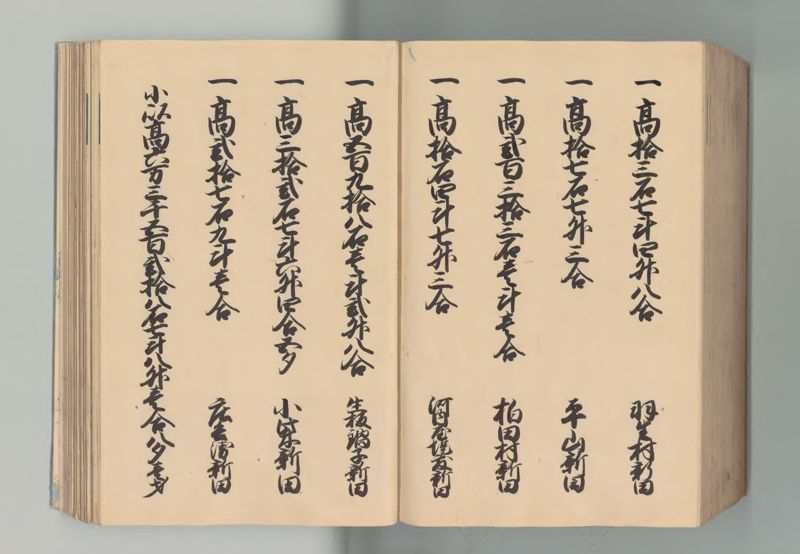 一高拾三石七斗四升八合 羽生村新田
一高拾七石七升三合 平山新田
一高弐百三拾三石壱斗壱合 柏田村新田
一高拾石四斗七升三合 新田
一高五百九拾八石壱斗弐升八合 生板鍋子新田
一高三拾弐石七斗六升四合五夕 小柴新田
一高弐拾七石九斗壱合 庄兵衛新田
小以高六万三千五百弐拾八石七斗八升壱合八夕壱才